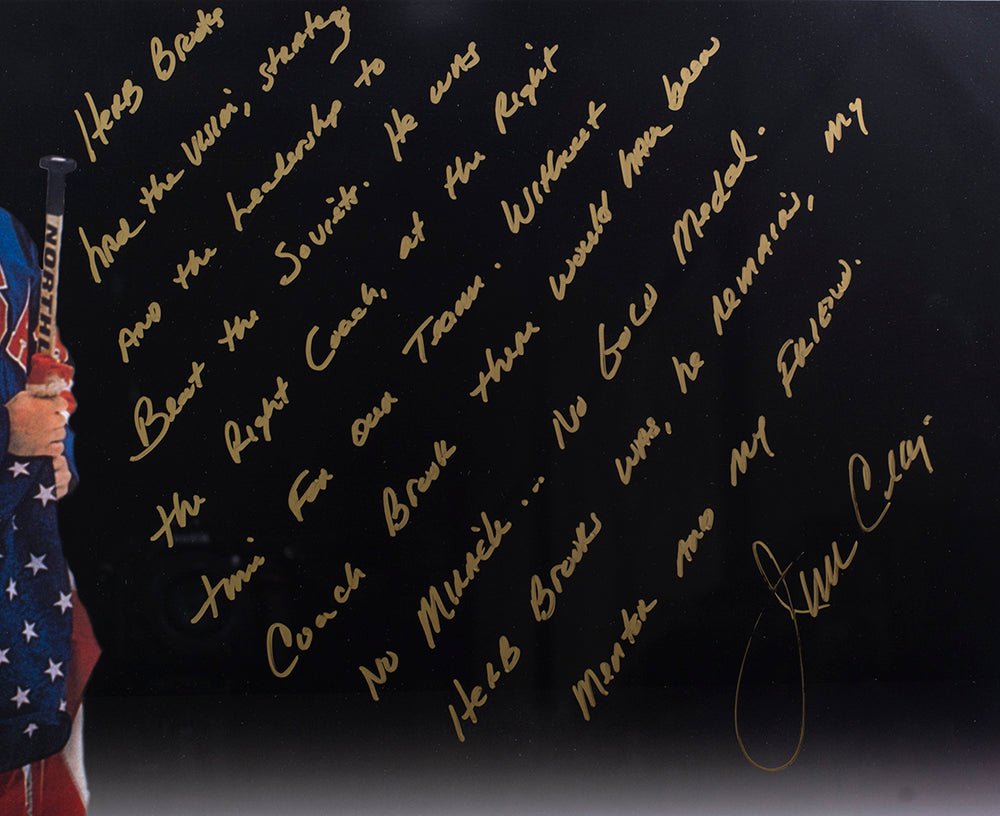 NORTHL
HERB Brooks
had the vision, strategy
AND the Leadership to
Beat the Soviets. He was
the Right Coach, at the Right
time For our Team. Without
Coach Brooks there would have been
No Miracle... No Gold Medal.
Herb Brooks was, he remains, my
Mentor AND my FRIEND.
Jim Craig